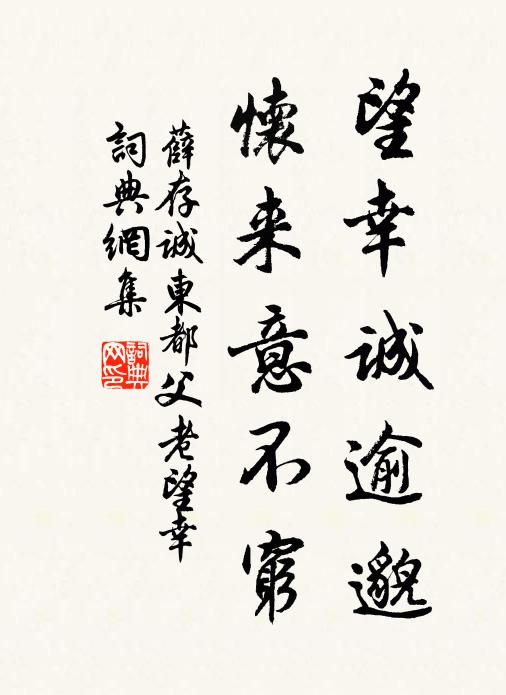 望幸誠逾邈
懷来意不窮
薛存誠東都父老望幸
詞典網集
詞典網印